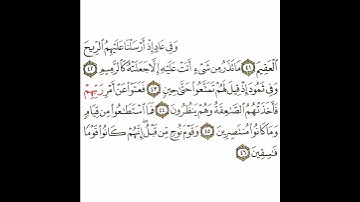 وَفِي عَادٍ إِذْ أَرْسَلْنَا عَلَيْهِمُ الرِّيحَ
الْعَقِيمَ ٤١ مَا تَذَرُ مِن شَيْءٍ أَتَتْ عَلَيْهِ إِلَّا جَعَلَتْهُ كَالرَّمِيمِ ٤٢
وَفِي ثَمُودَ إِذْ قِيلَ لَهُمْ تَمَتَّعُوا حَتَّىٰ حِينٍ ٤٣ فَعَتَوْا عَنْ أَمْرِ رَبِّهِمْ
فَأَخَذَتْهُمُ الصَّاعِقَةُ وَهُمْ يَنظُرُونَ ٤٤ فَمَا اسْتَطَاعُوا مِن قِيَامٍ
وَمَا كَانُوا مُنتَصِرِينَ ٤٥ وَقَوْمَ نُوحٍ مِّن قَبْلُ إِنَّهُمْ كَانُوا قَوْمًا
فَاسِقِينَ ٤٦